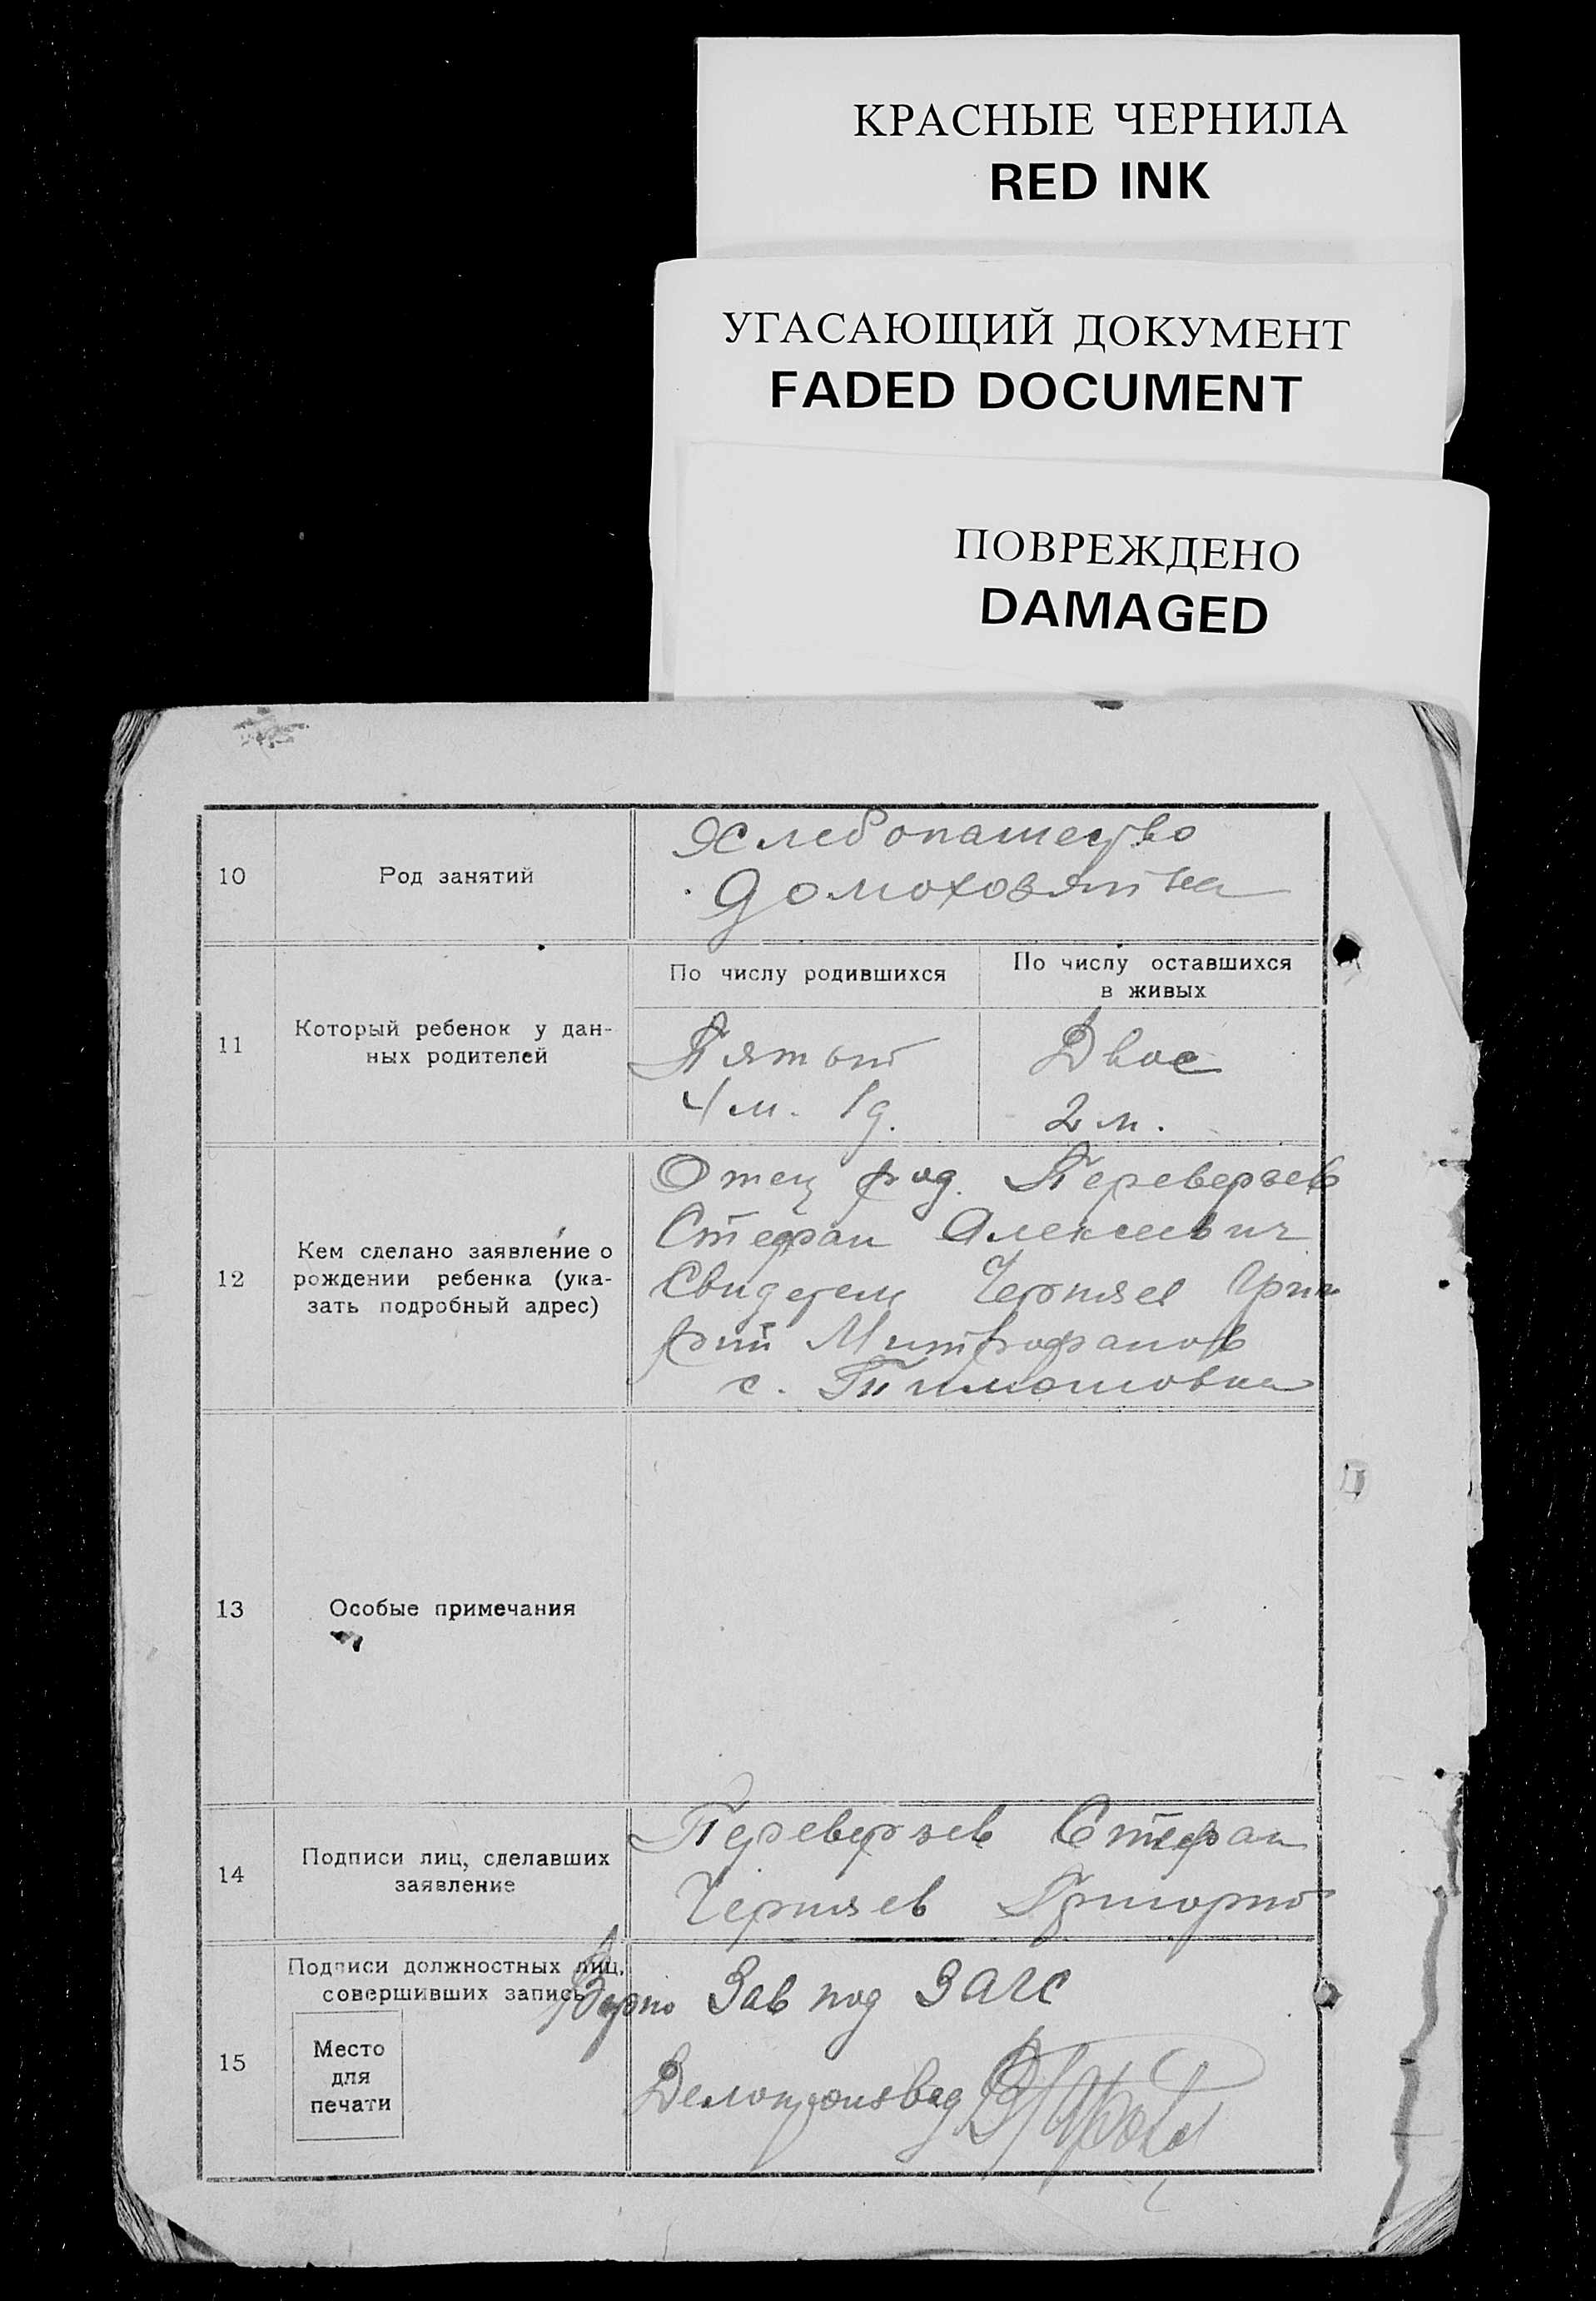 КРАСНЫЕ ЧЕРНИЛА
RED INK
УГАСАЮЩИЙ ДОКУМЕНТ
FADED DOCUMENT
ПОВРЕЖДЕНО
DAMAGED
10
Род занятий
Хлебопашество
Домохозяйка
11
Который ребенок у дан-
ных родителей
По числу родившихся
По числу оставшихся
в живых
Пятый
4 м. 1 д.
Двое
2 м.
12
Кем сделано заявление о
рождении ребенка (ука-
зать подробный адрес)
Отец род. Переверзев
Стефан Алексеевич
Свидетель Черняев Григ
Митрофанов
с. Тимошовка
13
Особые примечания
14
Подписи лиц, сделавших
заявление
Переверзев Стефан
Черняев Григорий
15
Подписи должностных лиц,
совершивших запись
Место
для
печати
Верно Зав под ЗАГС
Делопроизвад